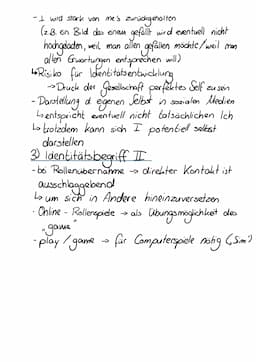 - I wird stark von me's zurückgehalten
(z.B. ein Bild das einem gefällt wird eventuell nicht
hochgeladen, weil man allen gefallen möchte / weil man
allen Erwartungen entsprechen will)
↳ Risiko für Identitätsentwicklung
→ Druck der Gesellschaft perfektes Self zu sein
- Darstellung d. eigenen Selbst in sozialen Medien
↳ entspricht eventuell nicht tatsächlichen Ich
↳ trotzdem kann sich I potentiell selbst
darstellen
3) Identitätsbegriff II
- bei Rollenübernahme → direkter Kontakt ist
ausschlaggebend
↳ um sich in Andere hineinzuversetzen
- Online-Rollenspiele → als Übungsmöglichkeit des
"game"
- play / game → für Computerspiele nötig (z. Sim's)